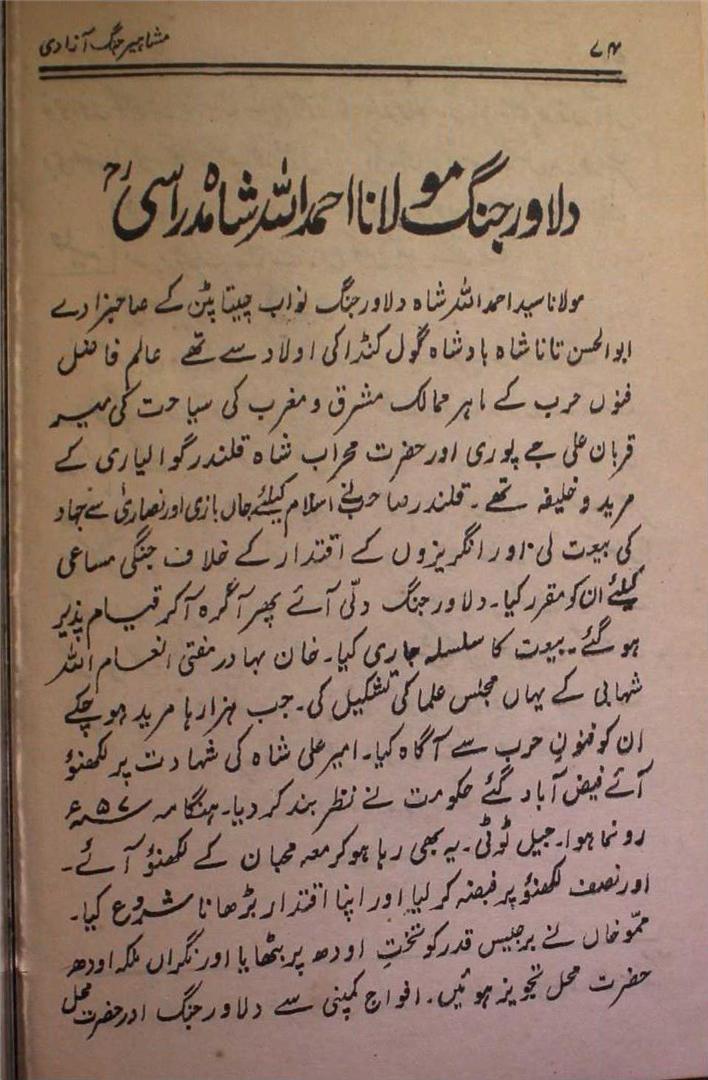 ۷۴ مشاہیر جنگ آزادی
دلاور جنگ مولانا احمد اللہ شاہ مدراسیؒ
مولانا سید احمد اللہ شاہ دلاور جنگ نواب چینا پٹن کے صاحبزادے
ابوالحسن تانا شاہ بادشاہ گول کنڈا کی اولاد سے تھے عالم فاضل
فنوں حرب کے ماہر ممالک مشرق و مغرب کی سیاحت کی میر
قربان علی جے پوری اور حضرت محراب شاہ قلندر گوالیاری کے
مرید و خلیفہ تھے۔ قلندر صاحب نے اسلام کیلئے جاں بازی اور نصاریٰ سے جہاد
کی بیعت لی اور انگریزوں کے اقتدار کے خلاف جنگی مساعی
کیلئے ان کو مقرر کیا۔ دلاور جنگ دلّی آئے پھر آگرہ آکر قیام پذیر
ہو گئے۔ بیعت کا سلسلہ جاری کیا۔ خان بہادر مفتی انعام اللہ
شہابی کے یہاں مجلس علما کی تشکیل کی۔ جب ہزارہا مرید ہو چکے
ان کو فنونِ حرب سے آگاہ کیا۔ امیر علی شاہ کی شہادت پر لکھنؤ
آئے فیض آباد گئے حکومت نے نظر بند کر دیا۔ ہنگامہ ۵۷ء
رونما ہوا۔ جیل ٹوٹی۔ یہ بھی رہا ہو کر معہ محبان کے لکھنؤ آئے۔
اور نصف لکھنؤ پر قبضہ کر لیا اور اپنا اقتدار بڑھانا شروع کیا۔
ممّو خاں نے برجیس قدر کو تختِ اودھ پر بٹھایا اور نگراں ملکہ اودھ
حضرت محل تجویز ہوئیں۔ افواج کمپنی سے دلاور جنگ اور حضرت محل